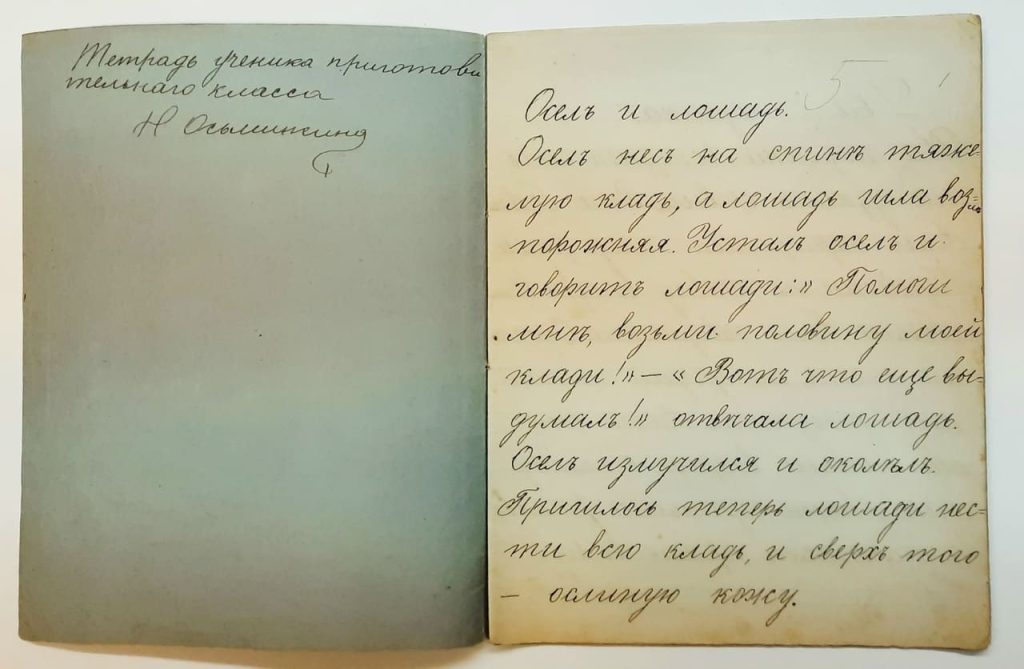 Тетрадь ученика приготови
тельнаго класса
Н Осьминина
5
Оселъ и лошадь.
Оселъ несъ на спинѣ тяже-
лую кладь, а лошадь шла воз=лѣ
порожняя. Усталъ оселъ и
говоритъ лошади: „ Помоги
мнѣ, возьми половину моей
клади!" — „ Вотъ что еще вы-
думалъ!" отвѣчала лошадь.
Оселъ измучился и околѣлъ.
Пришлось теперь лошади нес-
ти всю кладь, и сверхъ того
— ослиную кожу.